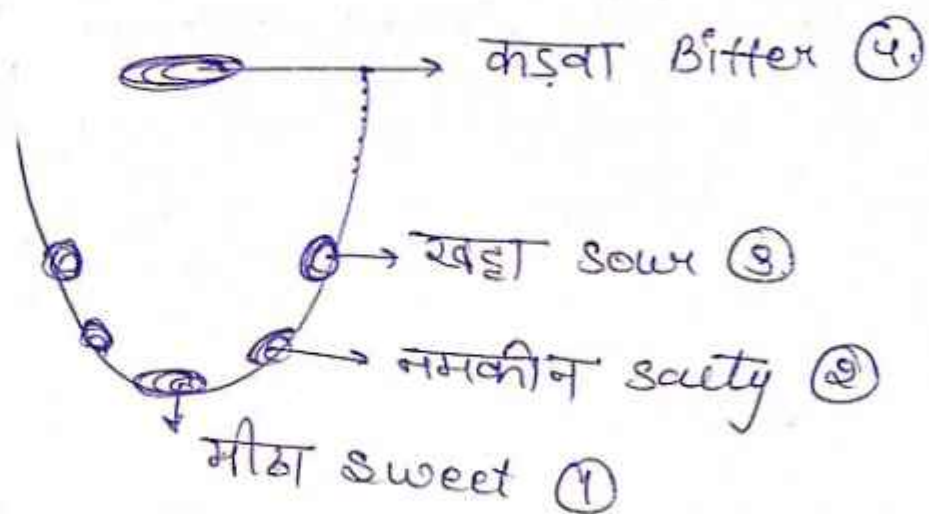 कड़वा Bitter ④.
खट्टा Sour ③
नमकीन Salty ②
मीठा Sweet ①